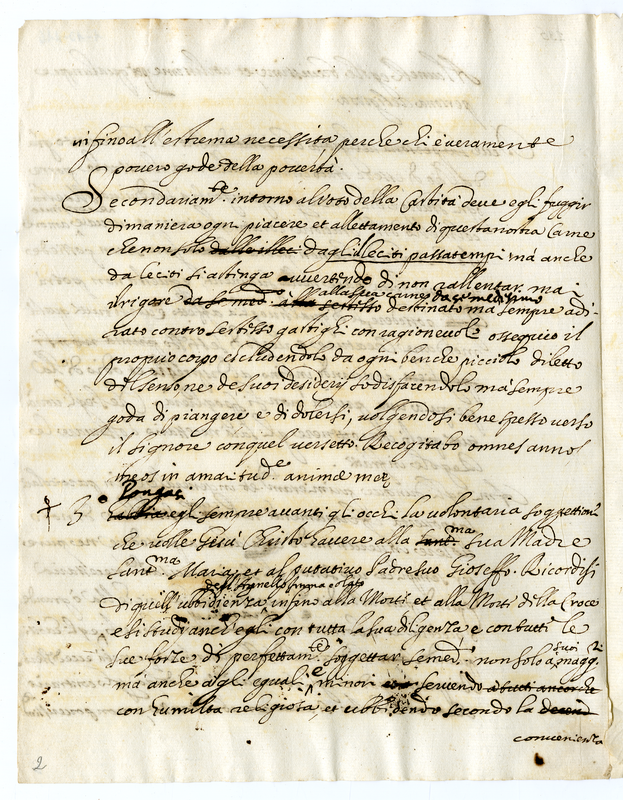 infino all'estrema necessità perche chi è veramente
povero gode della povertà.
Secondariam.te intorno al voto della Castità deve egli fuggir
di maniera ogni piacere et allettamento di questa nostra Carne
che non solo dalle illeci dagl'illeciti passatempi mà anche
da leciti si astinga avvertendo di non rallentar mai
il rigore da se med.o alla sua carne da se medesimo
à se stesso destinato mà sempre adi-
rato contro se stesso gastighi con ragionevole ossequio il
proprio corpo escludendolo da ogni benche picciolo diletto
del senso, ne de suoi desiderij sodisfacendolo mà sempre
goda di piangere e di dolersi, volgendosi bene spesso verso
il Signore con quel versetto. Recogitabo omnes annos
meos in amaritud.e animæ meę
Pongasi
3.o habbia egli sempre avanti gli occhi la volontaria soggettione
che volle Giesù Christo havere alla Sant.ma sua Madre
Sant.ma Maria, et al putativo Padre suo Gioseffo. Ricordisi
degl'
di quell'ubbidienza infino alla Morte et alla Morte della Croce
e si studi anch'egli con tutta la sua diligenza e con tutte le
sue forze di perfettam.te soggettar se med.o non solo a suoi magg.ri
mà anche à gli eguali e minori servendo à tutti ancorche
con humiltà religiosa, et ubbidendo secondo la decend
convenienza
2